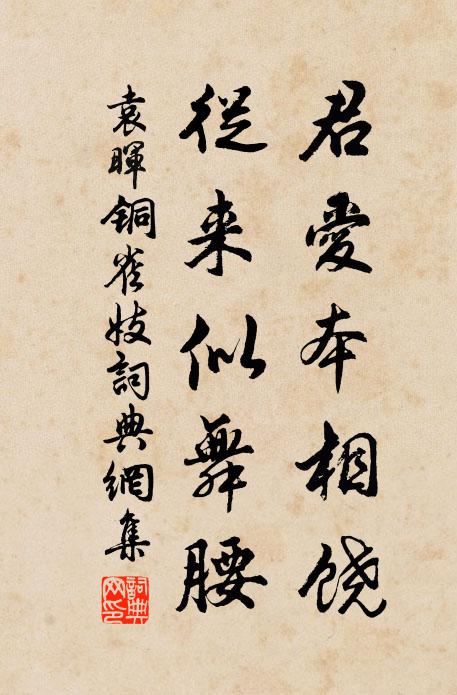 君愛本相饶
從来似舞腰
袁暉銅雀妓詞典網集
詞典網印